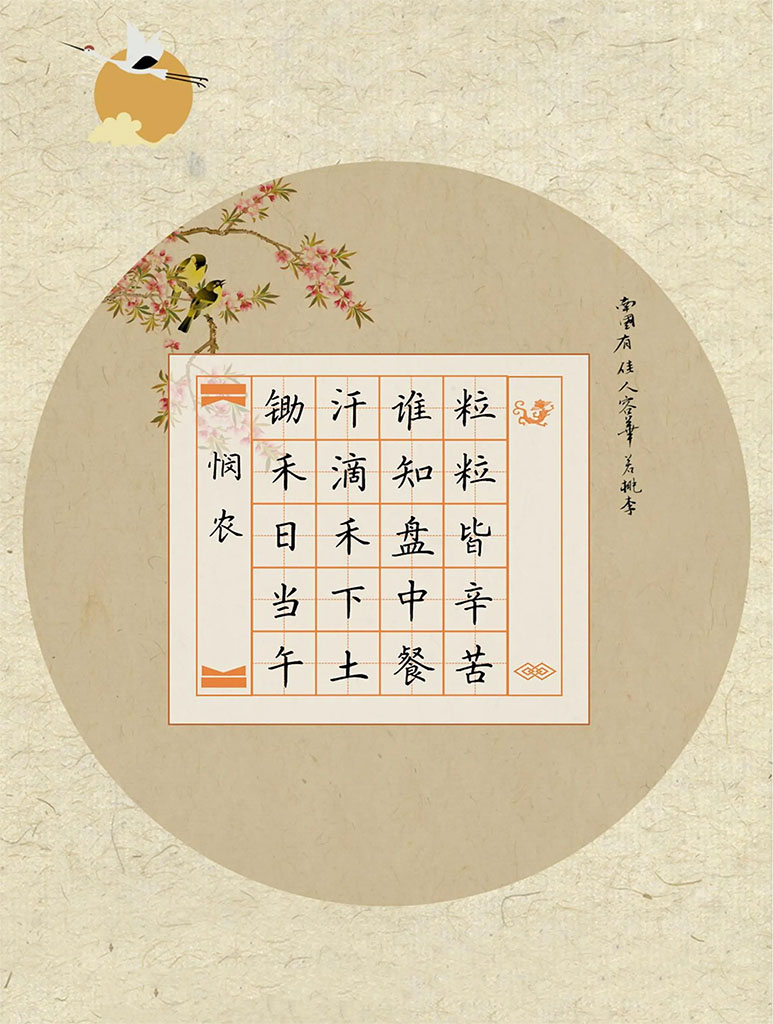 悯农
锄禾日当午
汗滴禾下土
谁知盘中餐
粒粒皆辛苦
南國有佳人容華若桃李